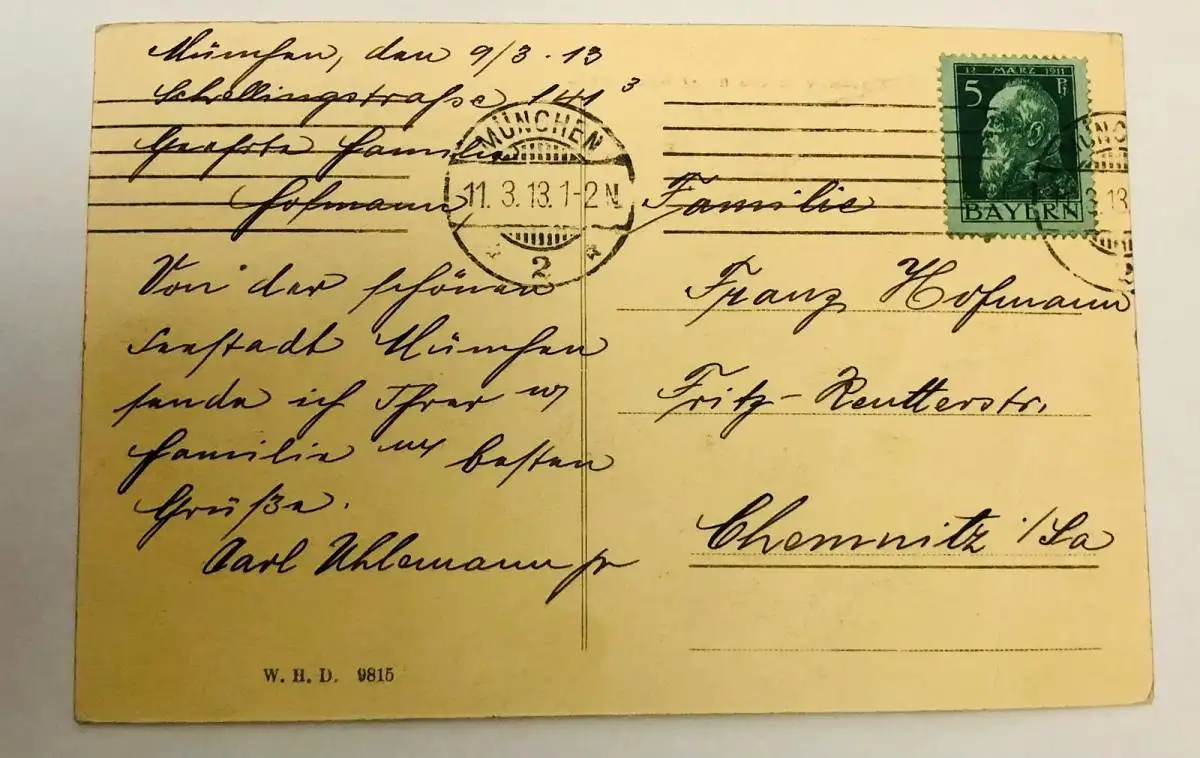 München, den 9/3.13
Schellingstrasse 141³
Geehrte Familie
Hofmann
Von der schönen
Seestadt München
sende ich Ihrer
Familie besten
Grüße.
Carl Uhlemann jr
W. H. D. 9815
MÜNCHEN
11. 3. 13. 1-2 N.
2
12 MÄRZ 1911
5 Pf
BAYERN
Familie
Franz Hofmann
Fritz-Reutterstr.
Chemnitz i/Sa